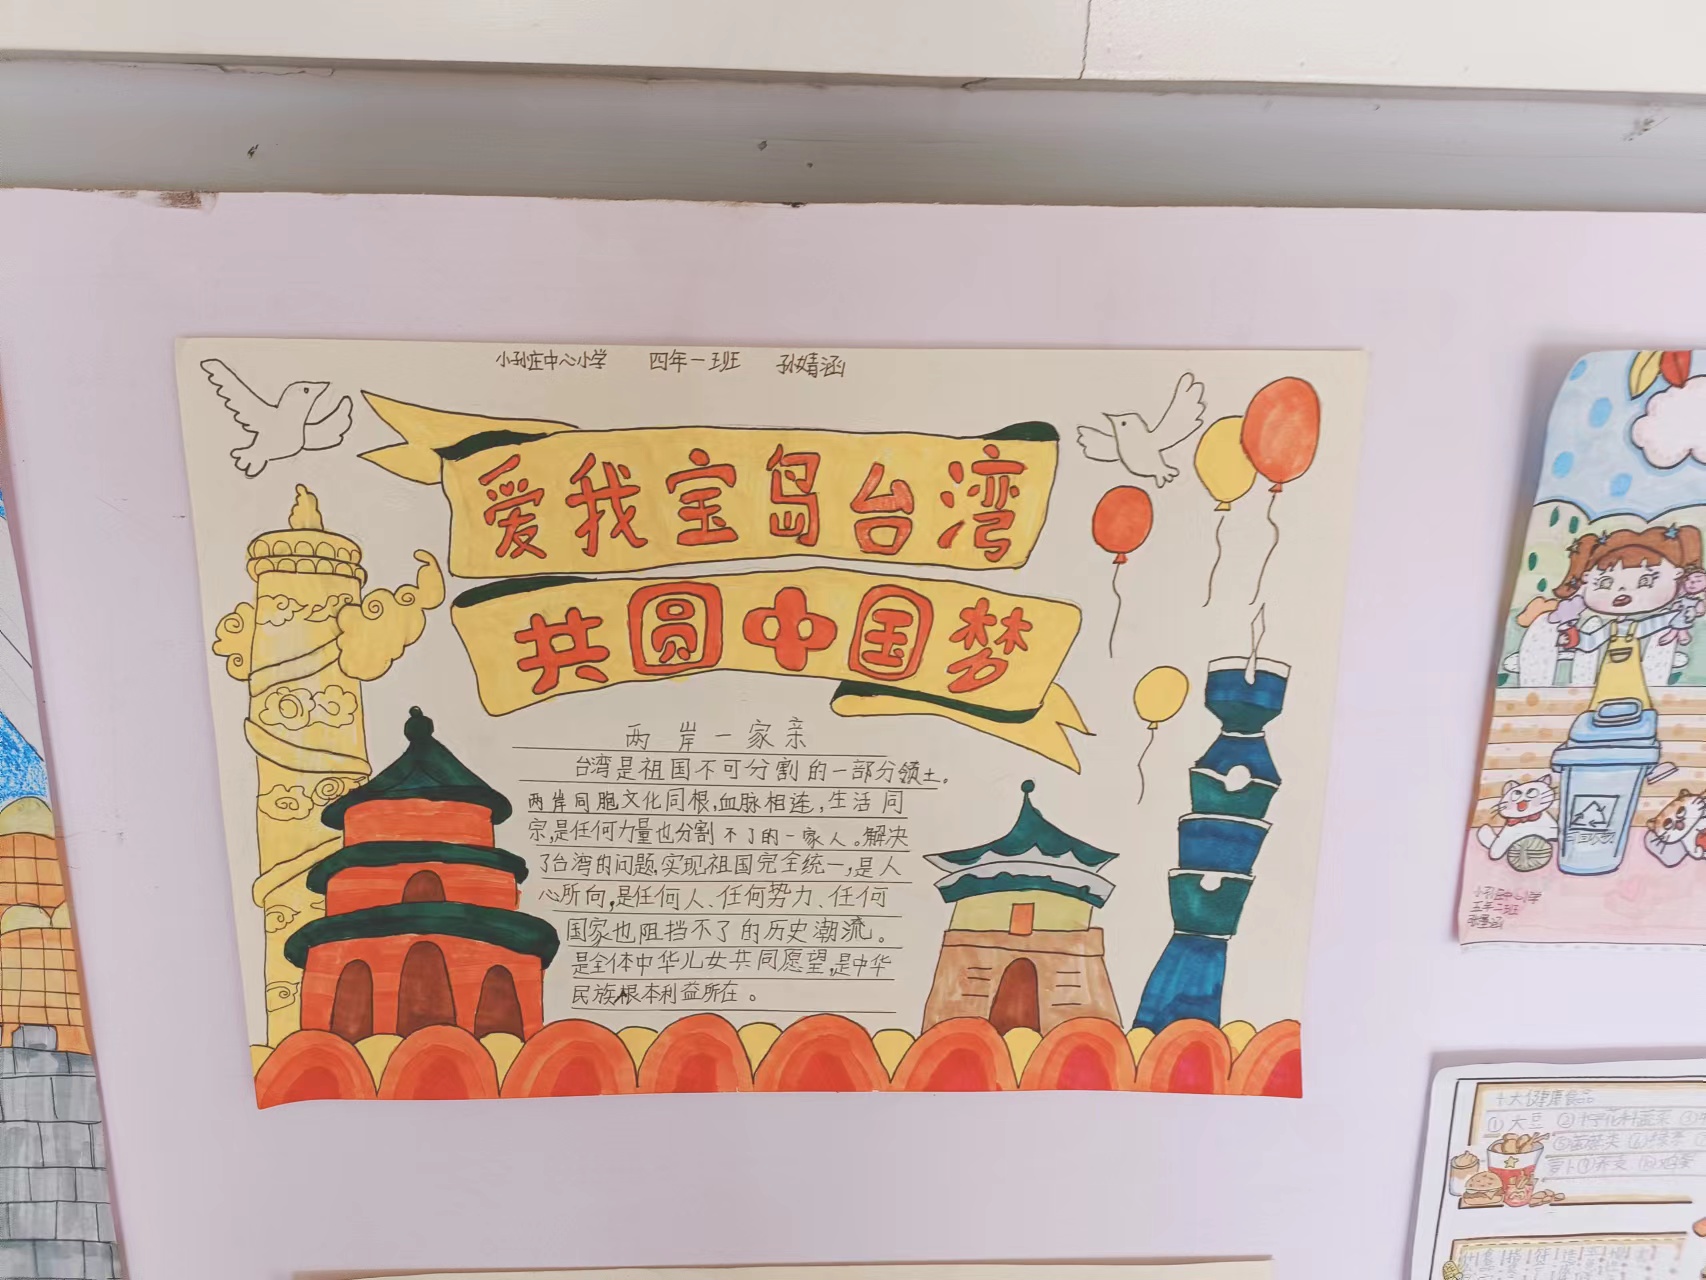 小孙庄中心小学 四年一班 孙婧涵
爱我宝岛台湾
共圆中国梦
两岸一家亲
台湾是祖国不可分割的一部分领土。
两岸同胞文化同根,血脉相连,生活同
宗,是任何力量也分割不了的一家人。解决
了台湾的问题,实现祖国完全统一,是人
心所向,是任何人、任何势力、任何
国家也阻挡不了的历史潮流。
是全体中华儿女共同愿望,是中华
民族根本利益所在。
小孙庄中心小学
五年二班
十大健康食品
①大豆 ②十字花科蔬菜